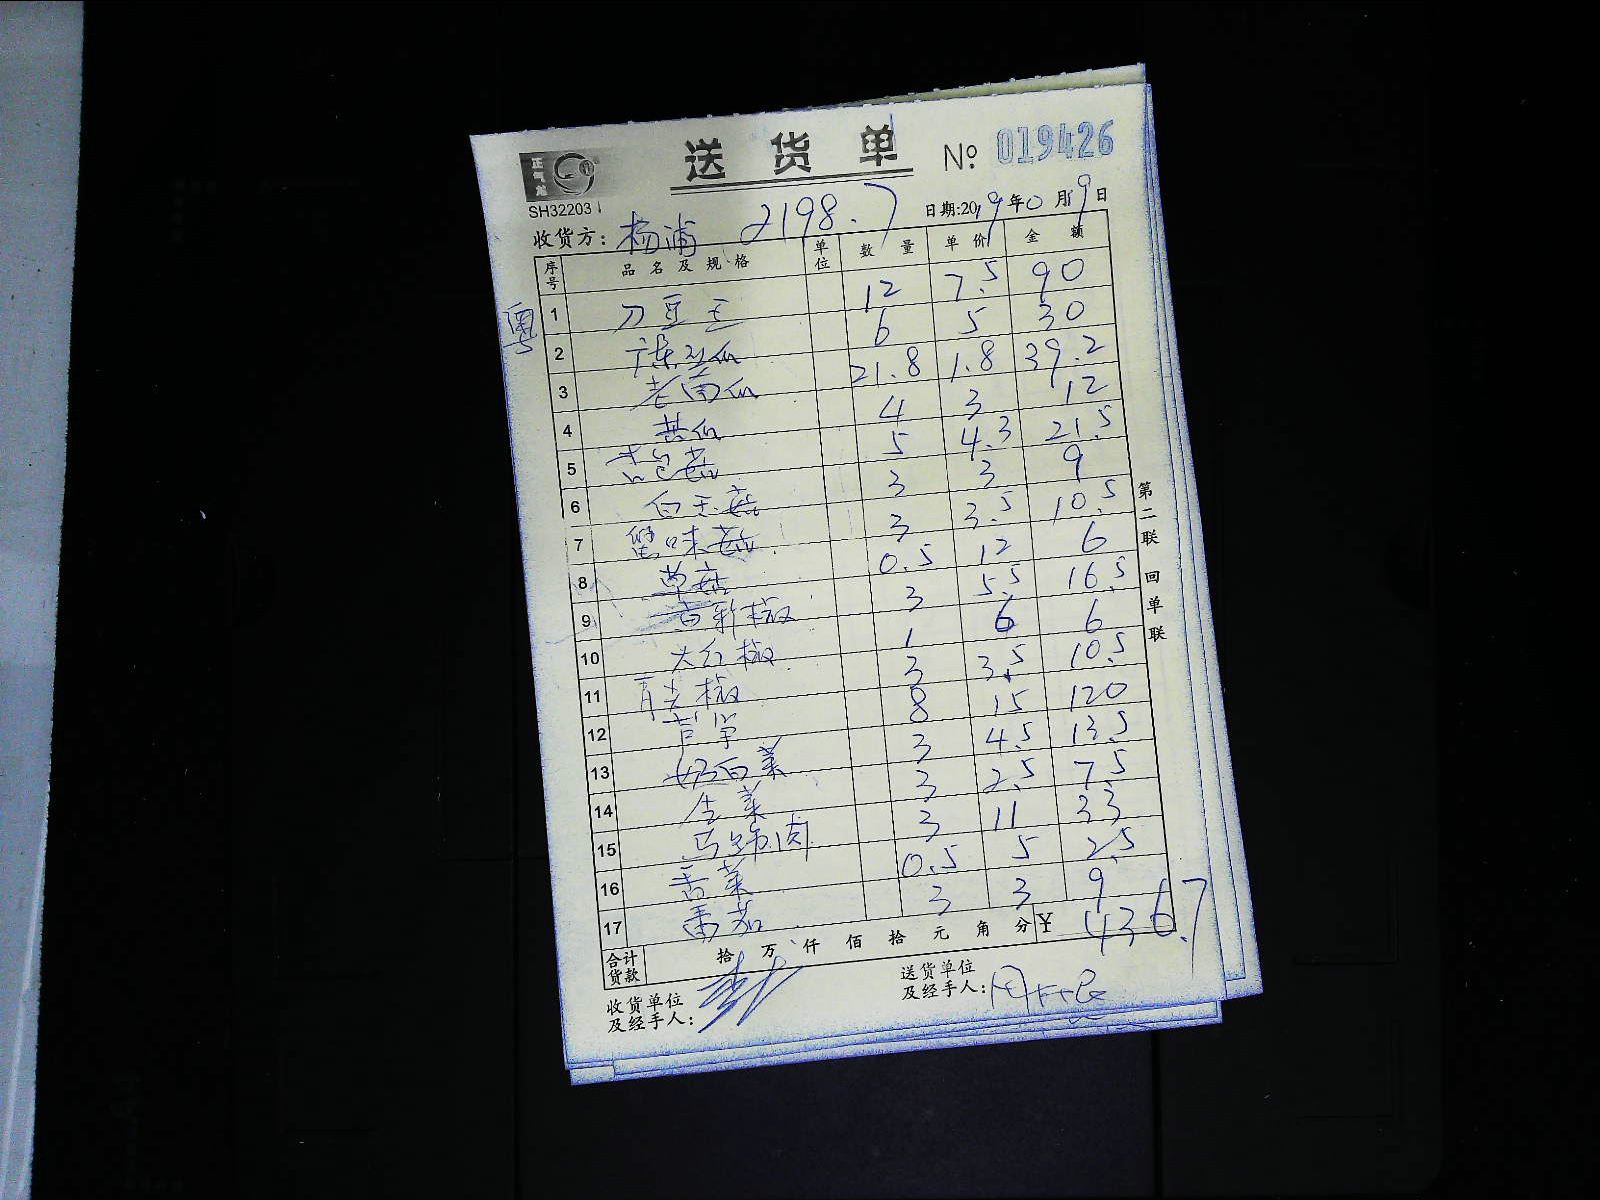 正气龙
SH32203
送货单 № 019426
收货方: 杨浦 2198.7 日期:2019年0月19日
序号 品名及规格 单位 数量 单价 金额
粤
1 刀豆王 12 7.5 90
2 6 5 30
3 老黄瓜 21.8 1.8 39.2
4 苦瓜 4 3 12
5 杏鲍菇 5 4.3 21.5
6 白玉菇 3 3 9
7 蟹味菇 3 3.5 10.5
8 草菇 0.5 12 6
9 3 5.5 16.5
10 大红椒 1 6 6
11 青尖椒 3 3.5 10.5
12 8 15 120
13 奶白菜 3 4.5 13.5
14 生菜 3 2.5 7.5
15 马蹄肉 3 11 33
16 香菜 0.5 5 2.5
17 番茄 3 3 9
合计货款 拾万仟佰拾元角分 ¥ 436.7
收货单位及经手人:
送货单位及经手人:
第二联 回单联